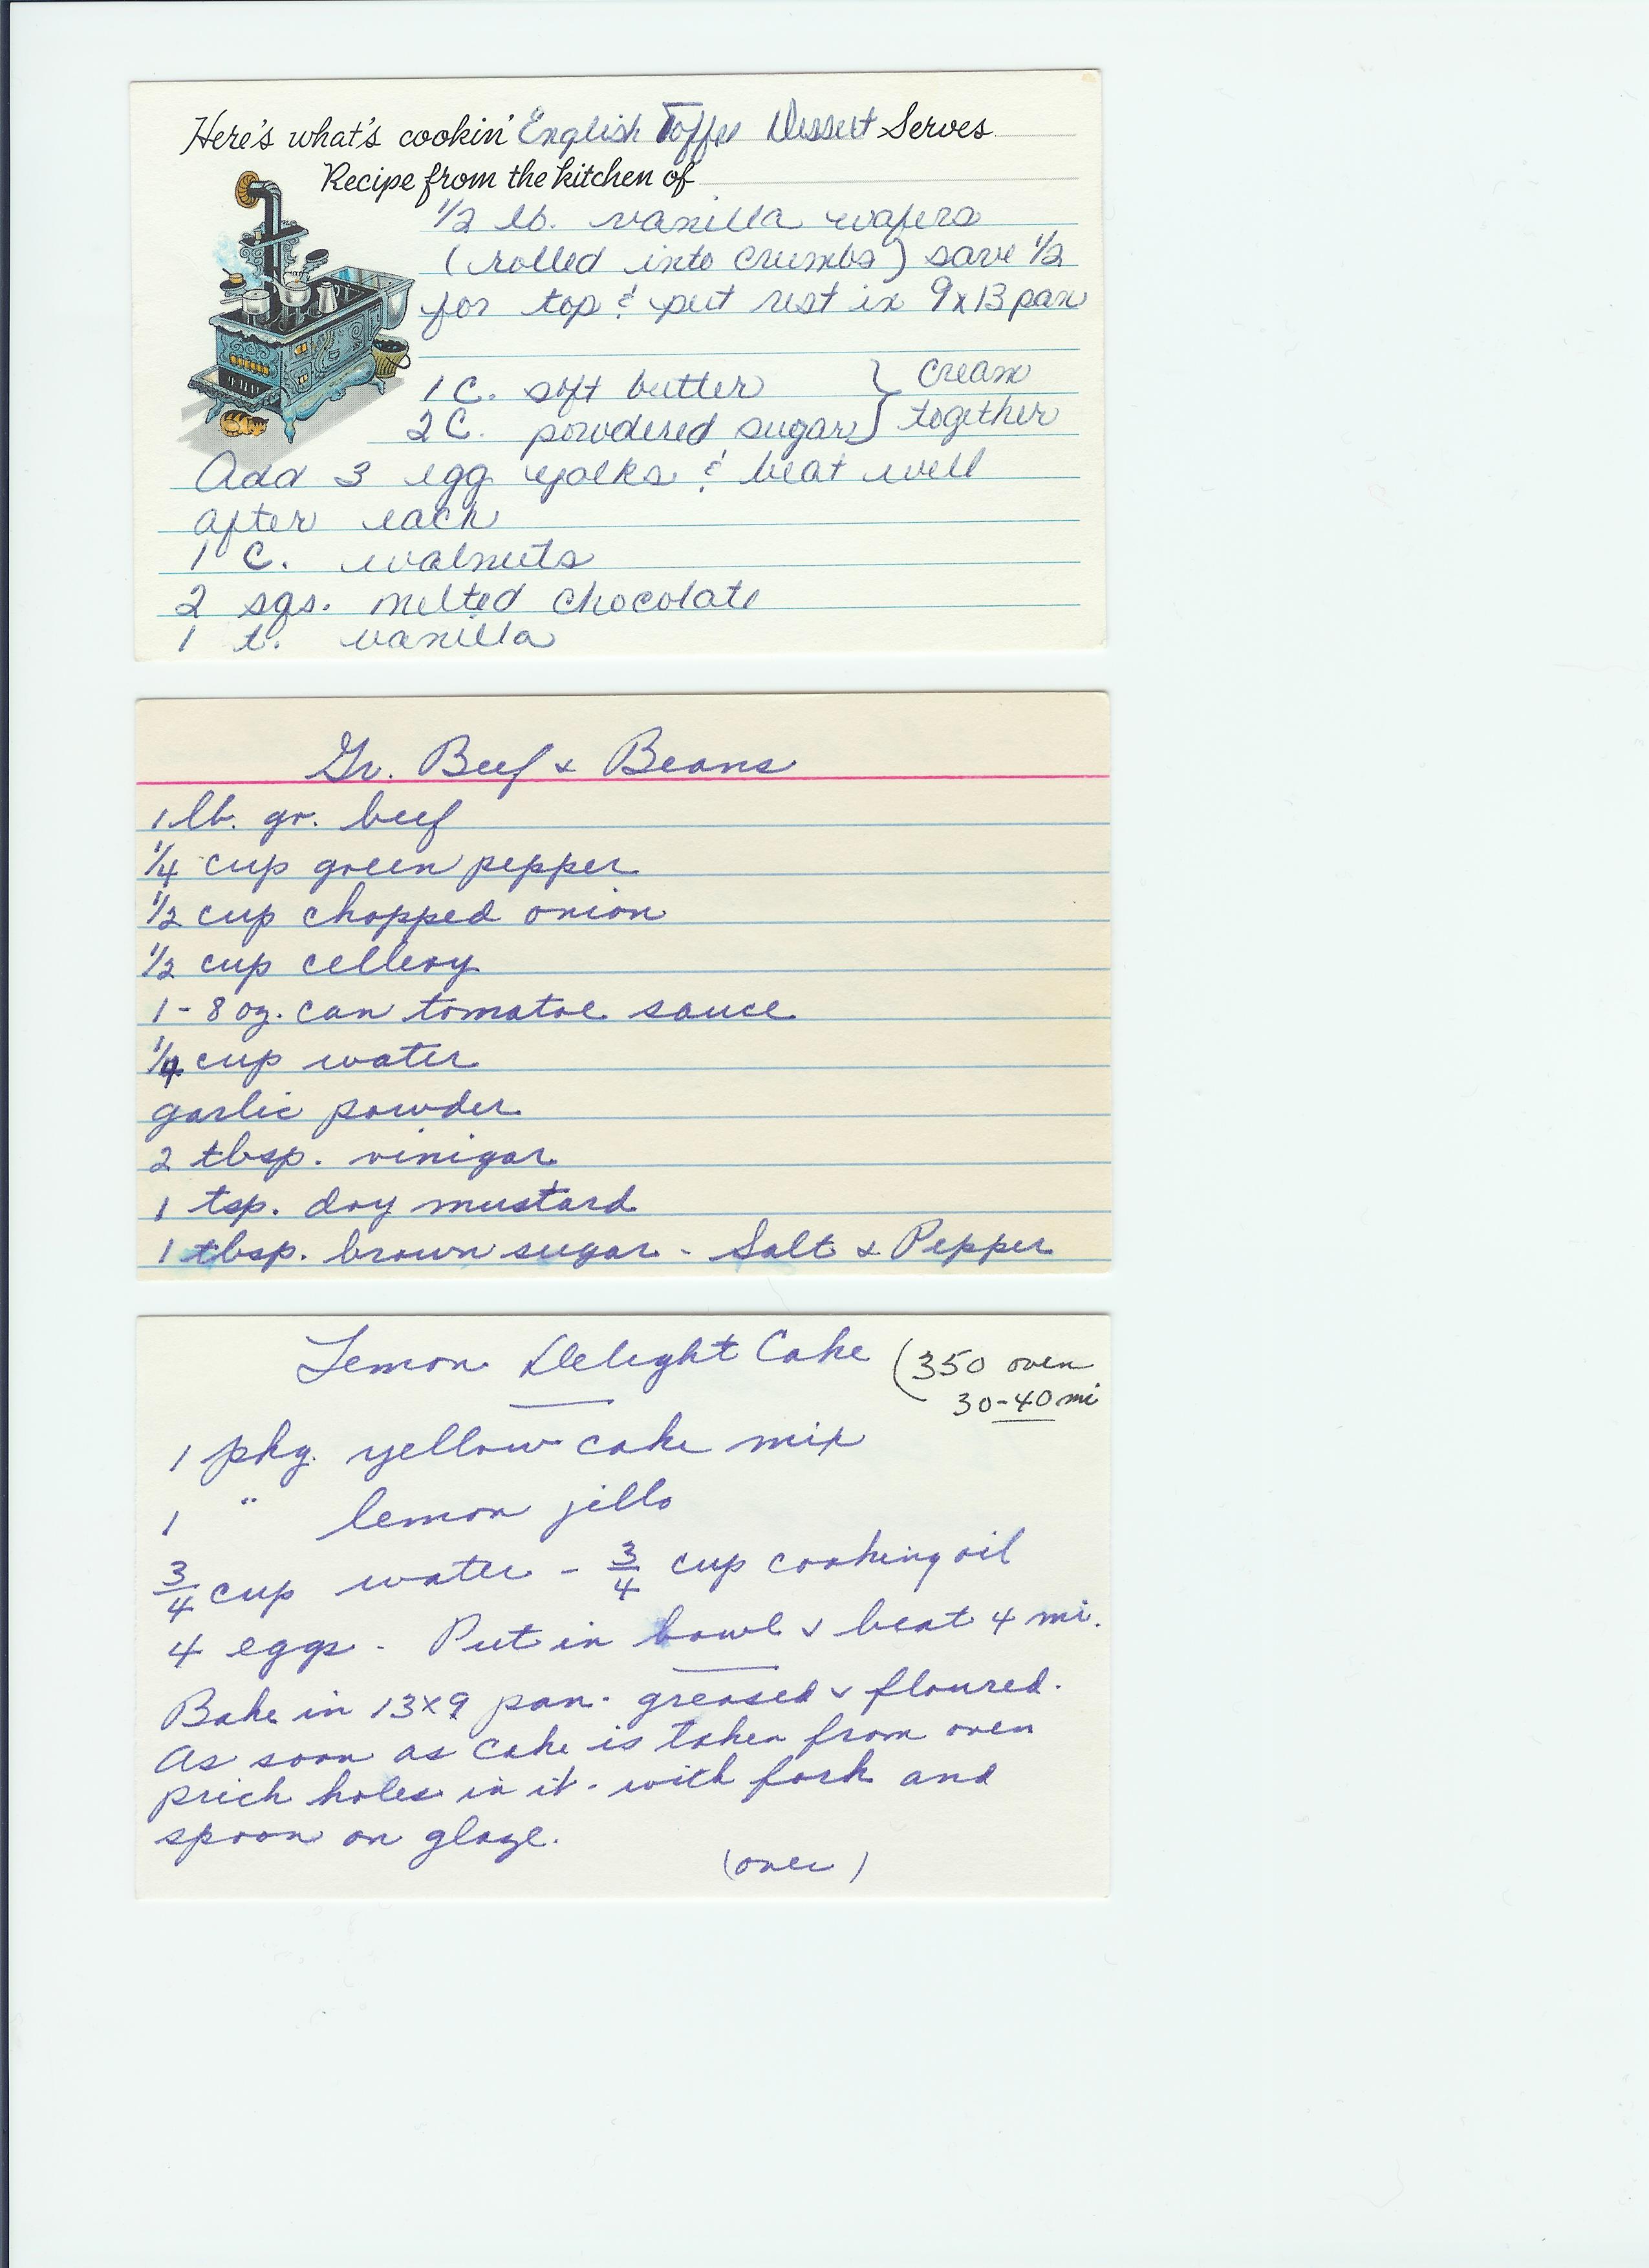 Here's what's cookin' English Toffee Dessert Serves
Recipe from the kitchen of
1/2 lb. vanilla wafers
(rolled into crumbs) save 1/2
for top & put rest in 9x13 pan
1 C. soft butter } cream
2 C. powdered sugar } together
Add 3 egg yolks & beat well
after each
1 C. walnuts
2 sqs. melted chocolate
1 t. vanilla
Gr. Beef & Beans
1 lb. gr. beef
1/4 cup green pepper
1/2 cup chopped onion
1/2 cup cellery
1 - 8 oz. can tomatoe sauce
1/4 cup water
garlic powder
2 tbsp. vinigar
1 tsp. dry mustard
1 tbsp. brown sugar - Salt & Pepper
Lemon Delight Cake (350 oven
30-40 mi
1 pkg. yellow cake mix
1 " lemon jello
3/4 cup water - 3/4 cup cooking oil
4 eggs - Put in bowl & beat 4 mi.
Bake in 13x9 pan. greased & floured.
As soon as cake is taken from oven
prick holes in it. with fork and
spoon on glaze.
(over)